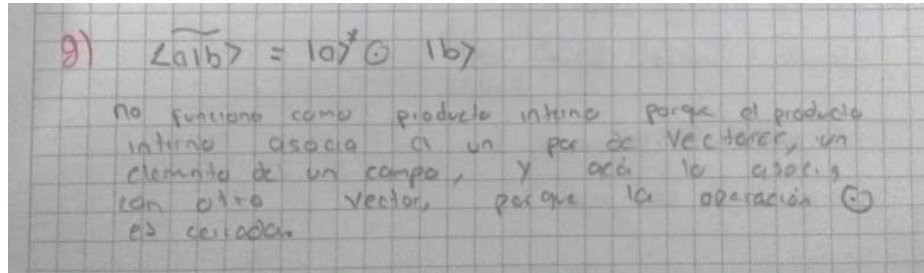 g) <a|b> = |a>* ⊙ |b>
no funciona como producto interno porque el producto
interno asocia a un par de vectores, un
elemento de un campo, y acá lo asocia
con otro vector, porque la operación ⊙
es cerrada.